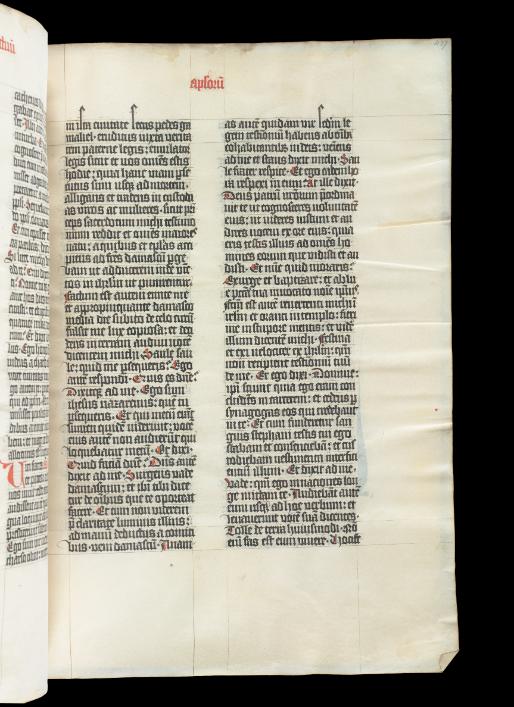 apłorū
in ista ciuitate secus pedes ga
maliel · eruditus iuxta verita
tem paterne legis : emulator
legis sicut et vos omnes estis
hodie : qui hanc viam pse
cutus sum usq̄ ad mortem ·
alligans et tradens in custodi
as viros ac mulieres · sicut pri
ceps sacerdotum michi testimo
nium reddit et om̄es maiores
natu : a quibus et ep̄las acci
piens ad frēs damascū pge
bam ut adducerem inde vīc
tos in ihrlm̄ ut punirentur ·
factum est autem eunte me
et appropinquante damasco
media die subito de celo circū
fulsit me lux copiosa : et deci
dens in terram audiui vocē
dicentem michi · Saule sau
le : quid me psequeris · Ego
autē respondi · Quis es dnē ·
Dixitq̄ ad me · Ego sum
ihesus nazarenus : quē tu
psequeris · Et qui mecū erāt
lumen quidē viderunt : vocē
eius autē non audierūt qui
loquebatur mecū · Et dixi ·
Quid faciā dn̄e · Dn̄s autē
dixit ad me · Surgens vade
damascum : et ibi tibi dicē
tur de om̄ibus que te oporteat
facere · Et cum non viderem
p̄ claritate luminis illius :
ad manū deductus a comiti
bus · veni damascū · Anani
as autē quidam vir scdm̄ le
gem testimoniū habens ab om̄ibꝫ
cohabitantibꝫ iudeis : veniens
ad me et stans dixit michi · Sau
le frater respice · Et ego eadem ho
ra respexi in eum · At ille dixit ·
Deus patrū nr̄orum pordina
uit te ut cognosceres voluntatē
eius : et videres iustum et au
dires vocem ex ore eius : quia
eris testis illius ad omēs ho
mines eorum que vidisti et au
disti · Et nūc quid moraris :
Exurge et baptizare : et ablu
e pcc̄a tua inuocato noīe ip̄ius ·
fcm̄ est autē reuertenti michi ī
ihrlm̄ et oranti in templo : fieri
me in stupore mentis : et vidē
illum dicentē michi · festina
et exi velociter ex ihrlm̄ : qm̄
non recipient testimoniū tuū
de me · Et ego dixi · Domine :
ipsi sciunt quia ego eram con
cludens in carcerem : et cedens p
synagogas eos qui credebant
in te : Et cum funderetur san
guis stephani testis tui ego
stabam et consentiebam : et cus
todiebam vestimenta interficiē
tium illum · Et dixit ad me ·
Vade : qm̄ ego in nacōes lon
ge mittam te · Audiebāt autē
eum usq̄ ad hoc verbum : et
leuauerunt vocē suā dicentes ·
Tolle de terra huiusmodi · Nō
em̄ fas est eum viuere · Vocife